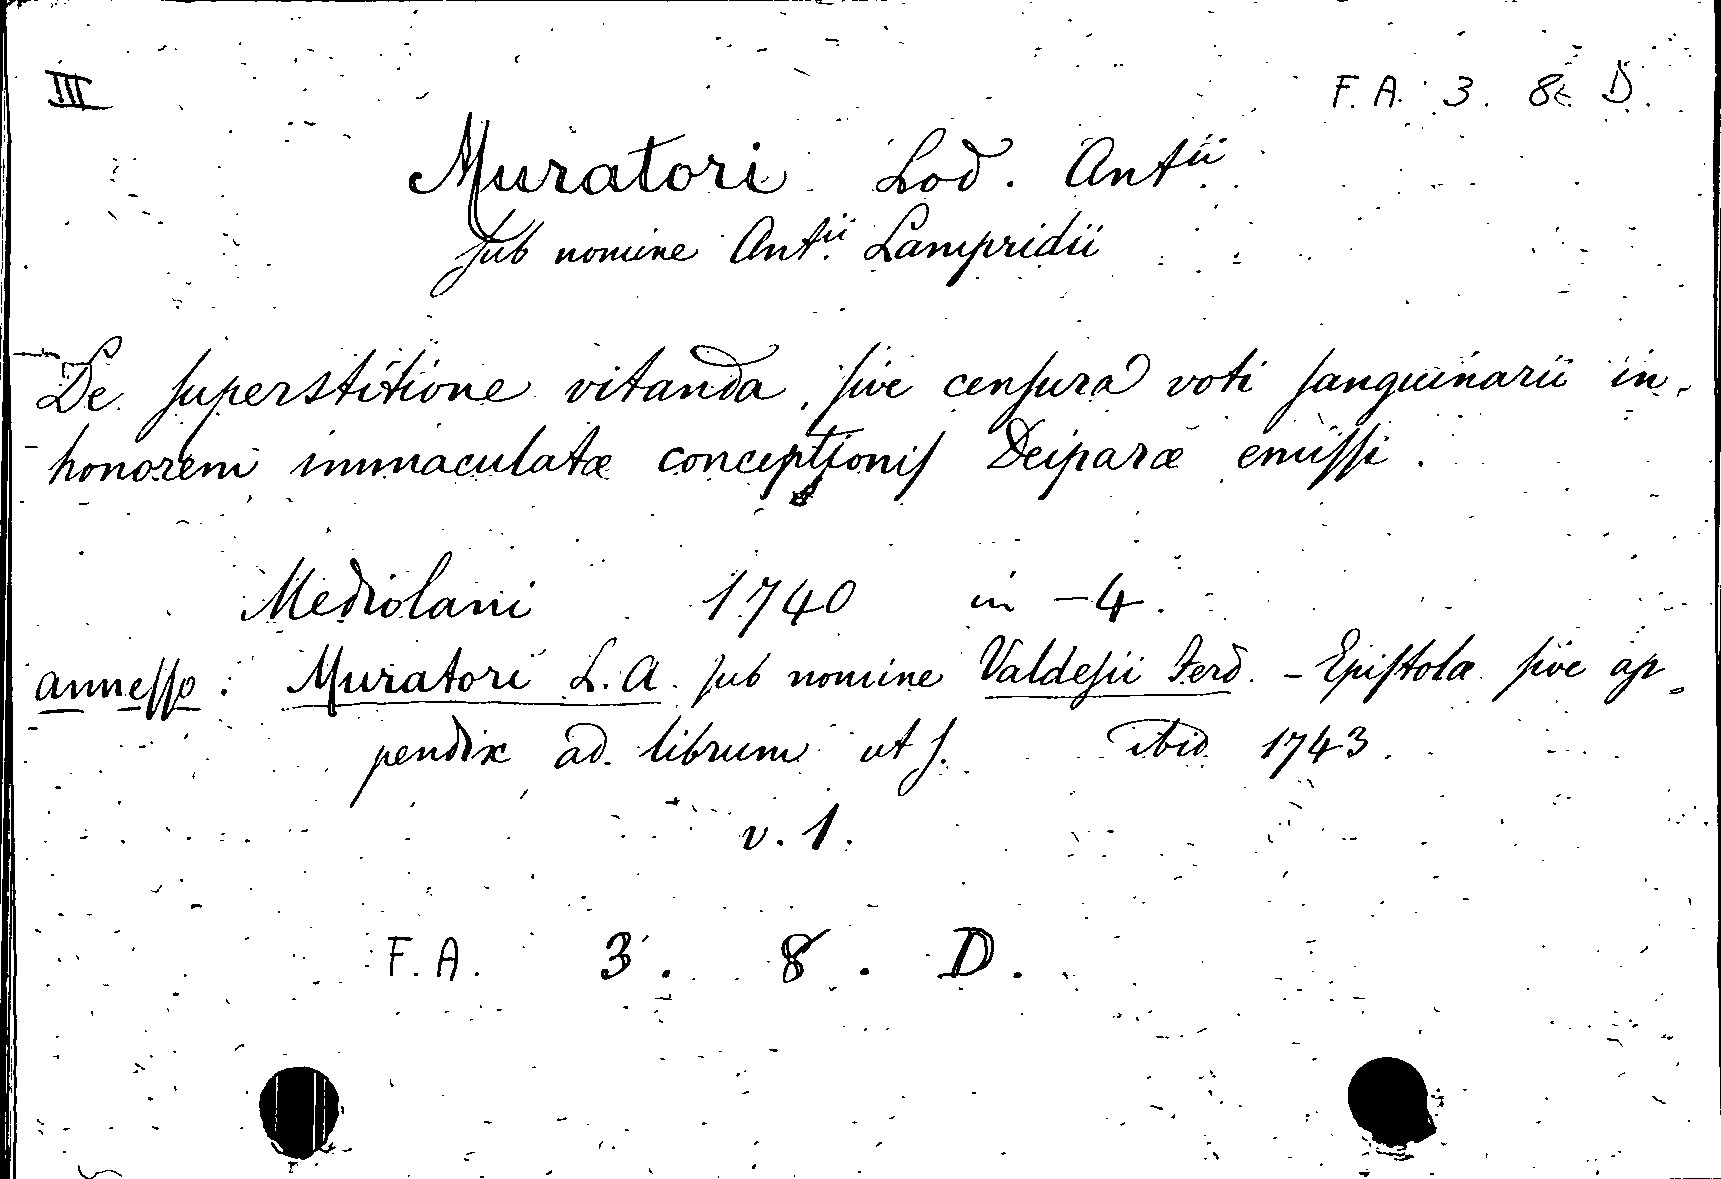 III
F. A. 3. 8. D.
Muratori Lod. Antii
sub nomine Antii Lampridii
De superstitione vitanda, sive censura voti sanguinarii in
honorem immaculatæ conceptionis Deiparæ emissi.
Mediolani 1740 in -4.
annesso: Muratori L. A. sub nomine Valdesii Ferd. - Epistolæ sive ap-
pendix ad librum ut s. ibid. 1743.
v. 1.
F. A. 3. 8. D.